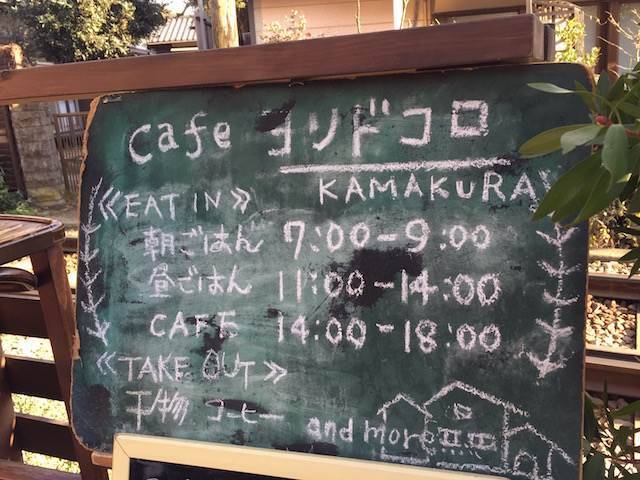 cafe ヨリドコロ
KAMAKURA
《EAT IN》
朝ごはん 7:00-9:00
昼ごはん 11:00-14:00
CAFE 14:00-18:00
《TAKE OUT》
干物 コーヒー and more